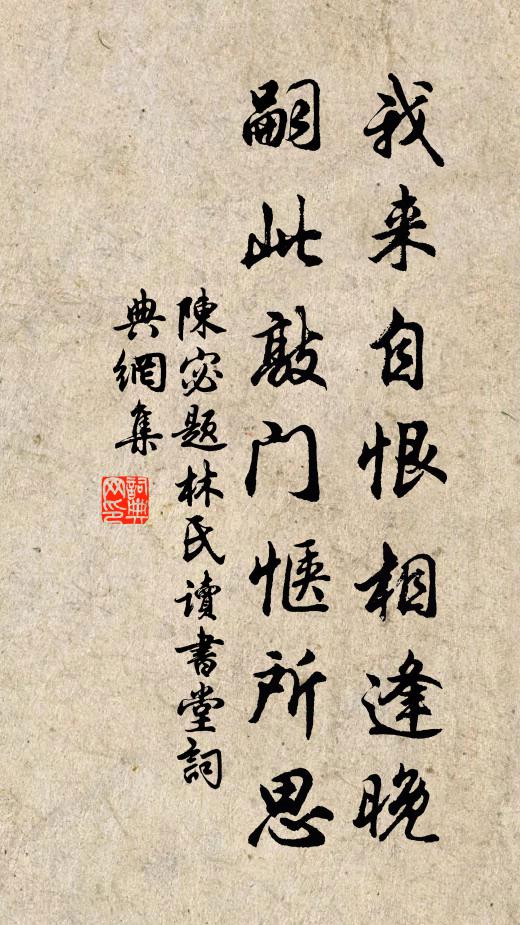 我来自恨相逢晚
嗣此敲门惬所思
陳宓题林氏讀書堂詞
典網集
詞典网印